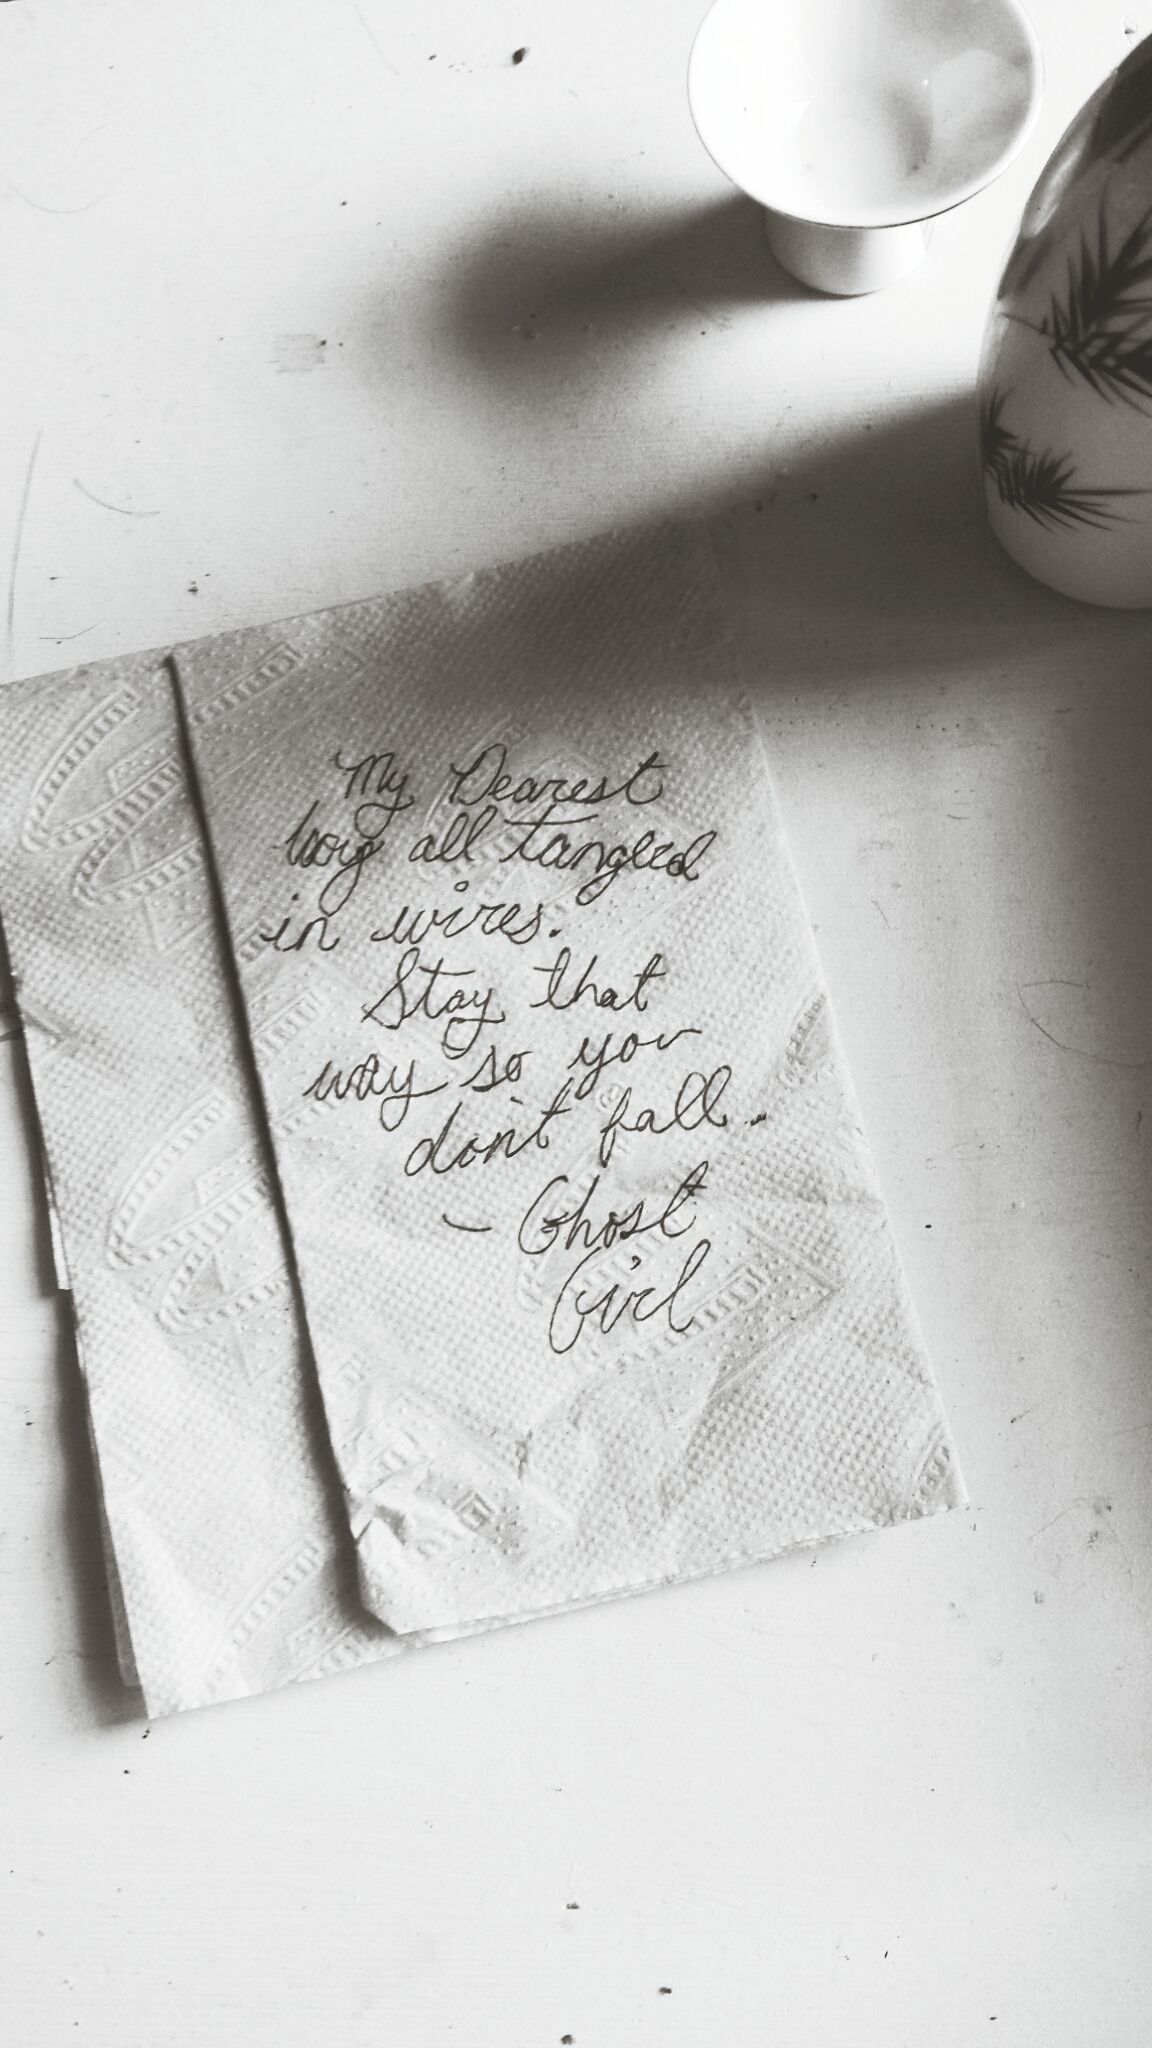 My Dearest
boy all tangled
in wires.
Stay that
way so you
don't fall.
- Ghost
Girl